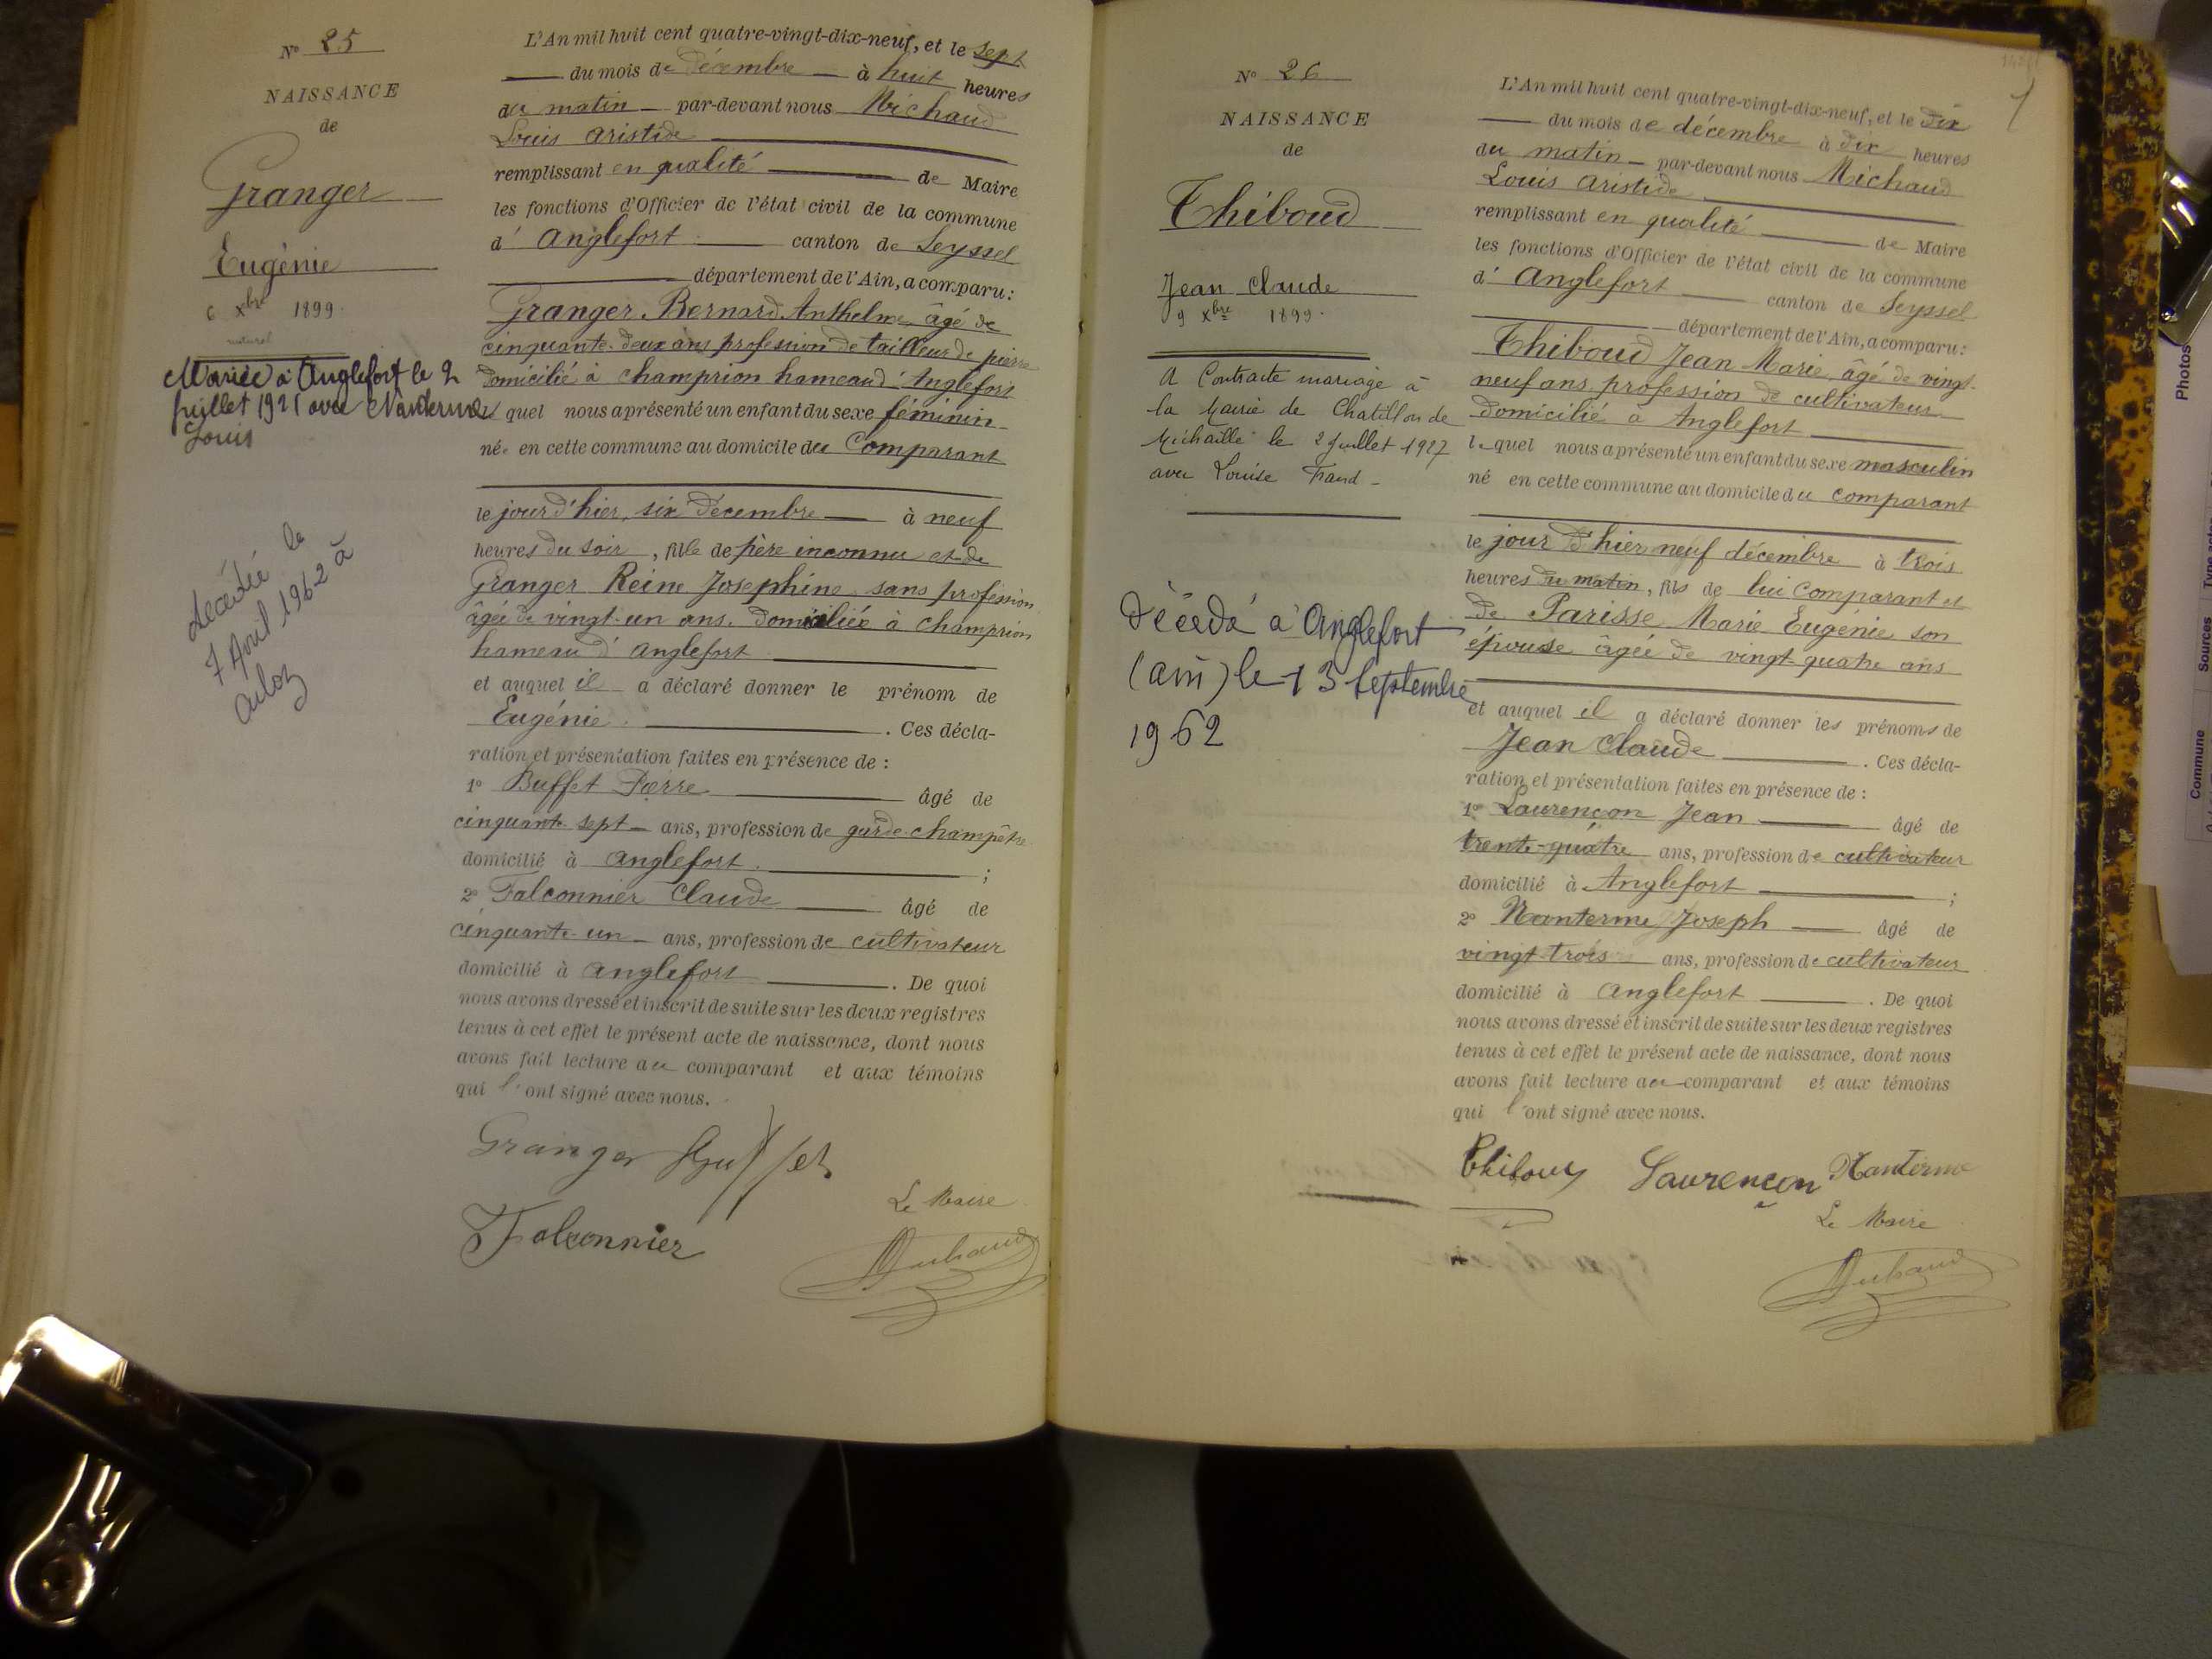 N° 25
NAISSANCE
de
Granger
Eugénie
6 Xbre 1899.
naturel
Mariée à Anglefort le 2
juillet 1921 avec Nanterme
Louis
décédée le
7 Avril 1962 à
Culoz
L'An mil huit cent quatre-vingt-dix-neuf, et le sept
du mois de décembre à huit heures
du matin par-devant nous Michaud
Louis Aristide
remplissant en qualité de Maire
les fonctions d'Officier de l'état civil de la commune
d' Anglefort canton de Seyssel
département de l'Ain, a comparu:
Granger Bernard Anthelme, âgé de
cinquante-deux ans profession de tailleur de pierre
domicilié à Champrion hameau d'Anglefort
lequel nous a présenté un enfant du sexe féminin
née en cette commune au domicile du Comparant
le jour d'hier, six décembre à neuf
heures du soir, fille de père inconnu et de
Granger Reine Josephine sans profession
âgée de vingt-un ans. domiciliée à Champrion
hameau d'Anglefort
et auquel il a déclaré donner le prénom de
Eugénie. Ces décla-
ration et présentation faites en présence de :
1° Buffet Pierre âgé de
cinquante sept ans, profession de garde-champêtre
domicilié à Anglefort. ;
2° Falconnier Claude âgé de
cinquante-un ans, profession de cultivateur
domicilié à Anglefort. De quoi
nous avons dressé et inscrit de suite sur les deux registres
tenus à cet effet le présent acte de naissance, dont nous
avons fait lecture au comparant et aux témoins
qui l'ont signé avec nous.
Granger Buffet
Le Maire
Falconnier
Michaud
N° 26
NAISSANCE
de
Thiboud
Jean Claude
9 Xbre 1899.
A Contracté mariage à
la Mairie de Chatillon de
Michaille le 2 Juillet 1927
avec Louise
Décédé à Anglefort
(Ain) le 13 Septembre
1962
L'An mil huit cent quatre-vingt-dix-neuf, et le dix
du mois de décembre à dix heures
du matin par-devant nous Michaud
Louis Aristide
remplissant en qualité de Maire
les fonctions d'Officier de l'état civil de la commune
d' Anglefort canton de Seyssel
département de l'Ain, a comparu:
Thiboud Jean Marie, âgé de vingt-
neuf ans profession de cultivateur
domicilié à Anglefort
lequel nous a présenté un enfant du sexe masculin
né en cette commune au domicile du comparant
le jour d'hier neuf décembre à trois
heures du matin, fils de lui comparant et
de Parisse Marie Eugénie son
épouse âgée de vingt-quatre ans
et auquel il a déclaré donner les prénoms de
Jean Claude. Ces décla-
ration et présentation faites en présence de :
1° Laurençon Jean âgé de
trente-quatre ans, profession de cultivateur
domicilié à Anglefort ;
2° Nanterme Joseph âgé de
vingt-trois ans, profession de cultivateur
domicilié à Anglefort. De quoi
nous avons dressé et inscrit de suite sur les deux registres
tenus à cet effet le présent acte de naissance, dont nous
avons fait lecture au comparant et aux témoins
qui l'ont signé avec nous.
Thiboud Laurençon Nanterme
Le Maire
Michaud
Photos
Sources
Commune